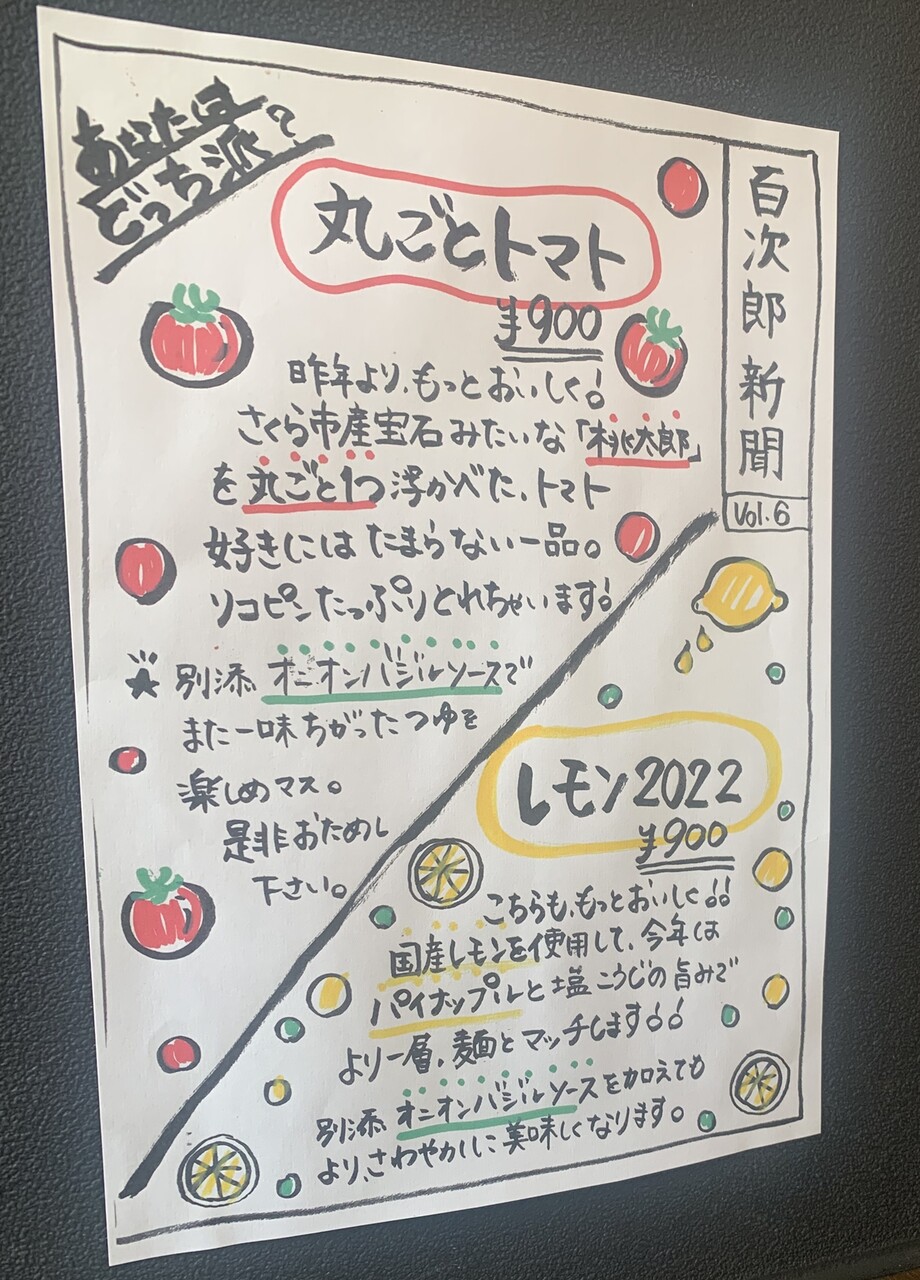 あなたは
どっち派？
百次郎新聞
Vol.6
丸ごとトマト
¥900
昨年より、もっとおいしく！
さくら市産宝石みたいな「桃太郎」
を丸ごと1つ浮かべた、トマト
好きにはたまらない一品。
リコピンたっぷりとれちゃいます！
★別添オニオンバジルソースで
また一味ちがったつゆを
楽しめマス。
是非おためし
下さい。
レモン2022
¥900
こちらも、もっとおいしく!!
国産レモンを使用して、今年は
パイナップルと塩こうじの旨みで
より一層、麺とマッチします!!
別添オニオンバジルソースを加えても
より、さわやかに美味しくなります。